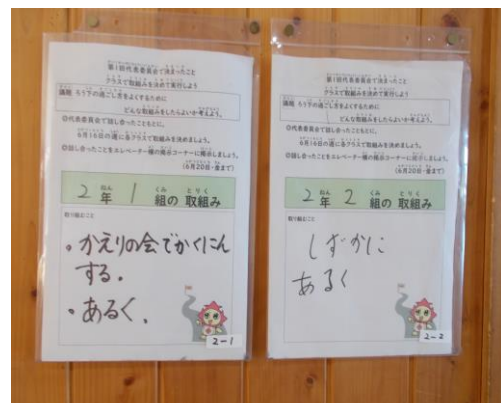 第1回代表委員会で決まったこと
クラスで取組みを決めて実行しよう
議題 ろう下の過ごし方をよくするために
どんな取組みをしたらよいか考えよう。
◎代表委員会で話し合ったことをもとに、
6月16日の週に各クラスで取組みを決めましょう。
◎話し合ったことをエレベーター横の掲示コーナーに掲示しましょう。
(6月20日・金まで)
2年 1組の 取組み
取り組むこと
・かえりの会でかくにん
する.
・あるく、
2-1
第1回代表委員会で決まったこと
クラスで取組みを決めて実行しよう
議題 ろう下の過ごし方をよくするために
どんな取組みをしたらよいか考えよう。
◎代表委員会で話し合ったことをもとに、
6月16日の週に各クラスで取組みを決めましょう。
◎話し合ったことをエレベーター横の掲示コーナーに掲示しましょう。
(6月20日・金まで)
2年 2組の 取組み
取り組むこと
しずかに
あるく
2-2